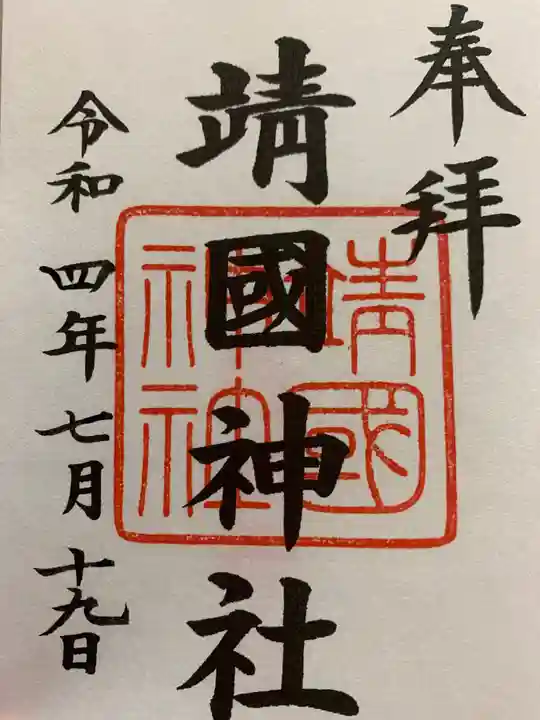 奉拝
靖國神社
靖國
神社
令和四年七月十九日